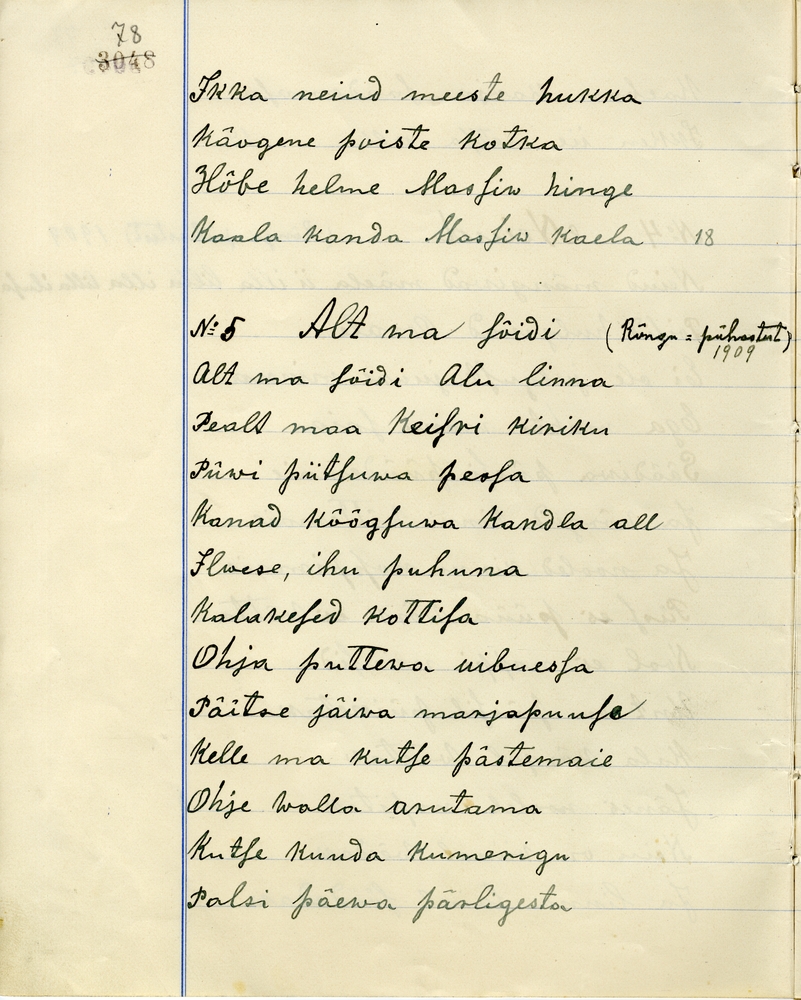 78
3048
Ikka neiud meeste hukka
Käogene poiste kotka
Hõbe helme Massiw hinge
Kaala kanda Massiw kaela 18
№ 5 Alt ma sõidi (Rõngu = pühastest)
1909
Alt ma sõidi Alu linna
Pealt maa Keisri kiriku
Püwi piitsuwa pessa
Kanad köögsuwa Kandla all
Ilwese, ihu puhuna
Kalakesed kottisa
Ohja puttewa uibuessa
Päitse jäiwa marjapuusa
Kelle ma kutse pästemaie
Ohje walla arutama
Kutse kuuda kumerigu
Palsi päewa pärligesta